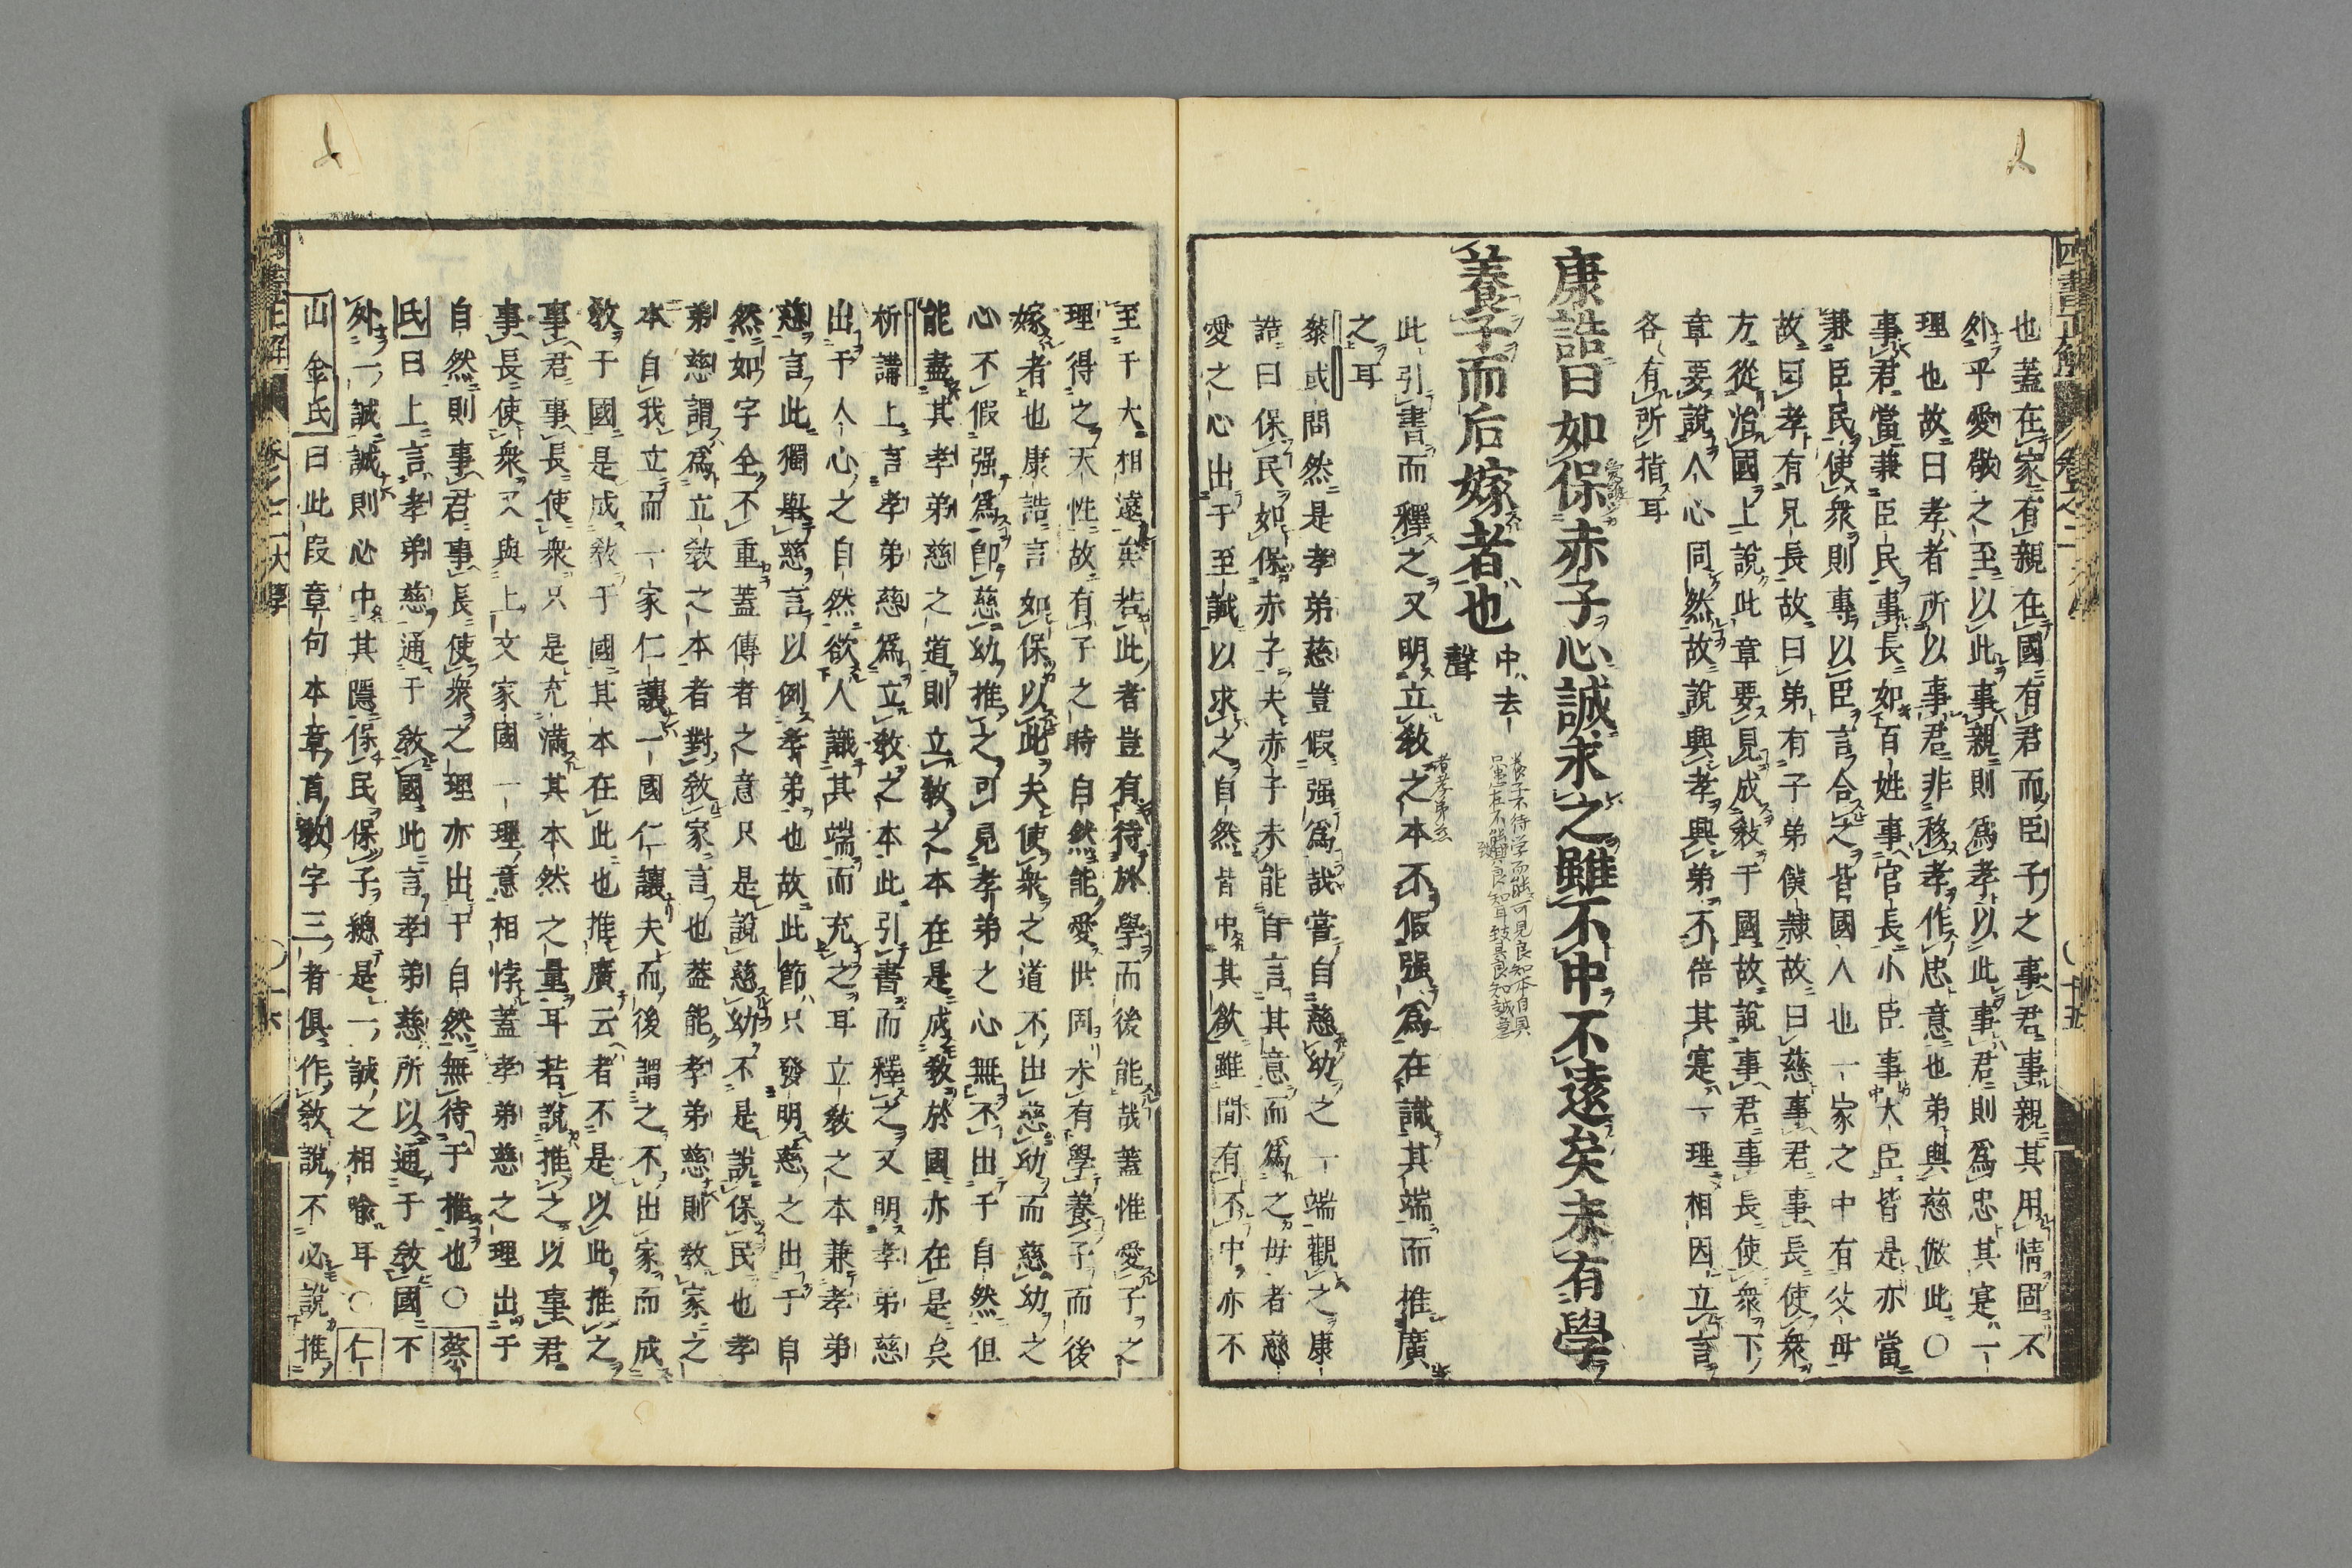 四書正解
卷之二
大學
十五
也蓋在家有親在國有君而臣子之事君事親其用情固不
外乎愛敬之至以此事親則爲孝以此事君則爲忠其寔一
理也故曰孝者所以事君非移孝作忠意也弟與慈倣此〇
事君當兼臣民事長如百姓事官長小臣事大臣皆是亦當
兼臣民使衆則專以臣言合之皆國人也一家之中有父母
故曰孝有兄長故曰弟有子弟僕隷故曰慈事君事長使衆
方從治國上說此章要見成敎于國故說事君事長使衆下
章要說人心同然故說興孝興弟不倍其寔一理相因立言
各有所指耳
康誥曰如保赤子心誠求之雖不中不遠矣未有學
養子而后嫁者也
中去
聲
此引書而釋之又明立敎之本不假强爲在識其端而推廣
之耳
蔡或問然是孝弟慈豈假强爲哉嘗自慈幼之一端觀之康
誥曰保民如保赤子夫赤子未能自言其意而爲之母者慈
愛之心出于至誠以求之自然皆中其欲雖間有不中亦不
至于大相遠矣若此者豈有待於學而後能哉蓋惟愛子之
理得之天性故有子之時自然能愛此固未有學養子而後
嫁者也康誥言如保以此夫使衆之道不出慈幼而慈幼之
心不假强爲卽慈幼推之可見孝弟之心無不出于自然但
能盡其孝弟慈之道則立敎之本在是成敎於國亦在是矣
析講上言孝弟慈爲立敎之本此引書而釋之又明孝弟慈
出于人心之自然欲人識其端而充之耳立敎之本兼孝弟
慈言此獨舉慈言以例孝弟也故此節只發明慈之出于自
然如字全不重蓋傳者之意只是說慈幼不是說保民也孝
弟慈謂爲立敎之本者對敎家言也蓋能孝弟慈則敎家之
本自我立而一家仁讓一國仁讓夫而後謂之不出家而成
敎于國是成敎于國其本在此也推廣云者不是以此推之
事君事長使衆只是充滿其本然之量耳若說推之以事君
事長使衆又與上文家國一理意相悖蓋孝弟慈之理出于
自然則事君事長使衆之理亦出于自然無待于推也〇蔡
氏曰上言孝弟慈通于敎國此言孝弟慈所以通于敎國不
外一誠誠則心中其隱保民保子總是一誠之相喩耳〇仁
山金氏曰此段章句本章首敎字三者俱作敎說不必說推
四書正解
卷之二
大學
十六